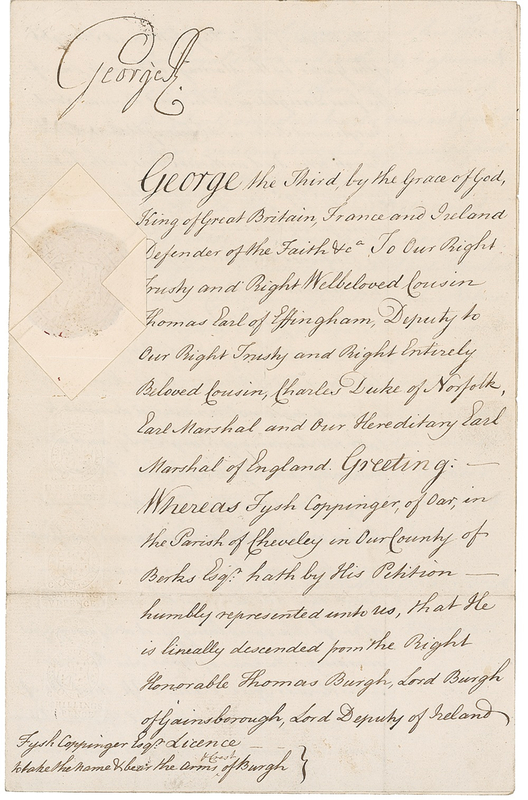 George R.
George the Third, by the Grace of God,
King of Great Britain, France and Ireland
Defender of the Faith &c.a To Our Right
Trusty and Right Welbeloved Cousin
Thomas Earl of Effingham, Deputy to
Our Right Trusty and Right Entirely
Beloved Cousin, Charles Duke of Norfolk,
Earl Marshal and Our Hereditary Earl
Marshal of England. Greeting: —
Whereas Fysh Coppinger, of Oar, in
the Parish of Cheveley in Our County of
Berks Esq.r hath by His Petition —
humbly represented unto us, that He
is lineally descended from the Right
Honorable Thomas Burgh, Lord Burgh
of Gainsborough, Lord Deputy of Ireland
Fysh Coppinger Esq.r Licence
& Crest
to take the name & bear the Arms of Burgh }